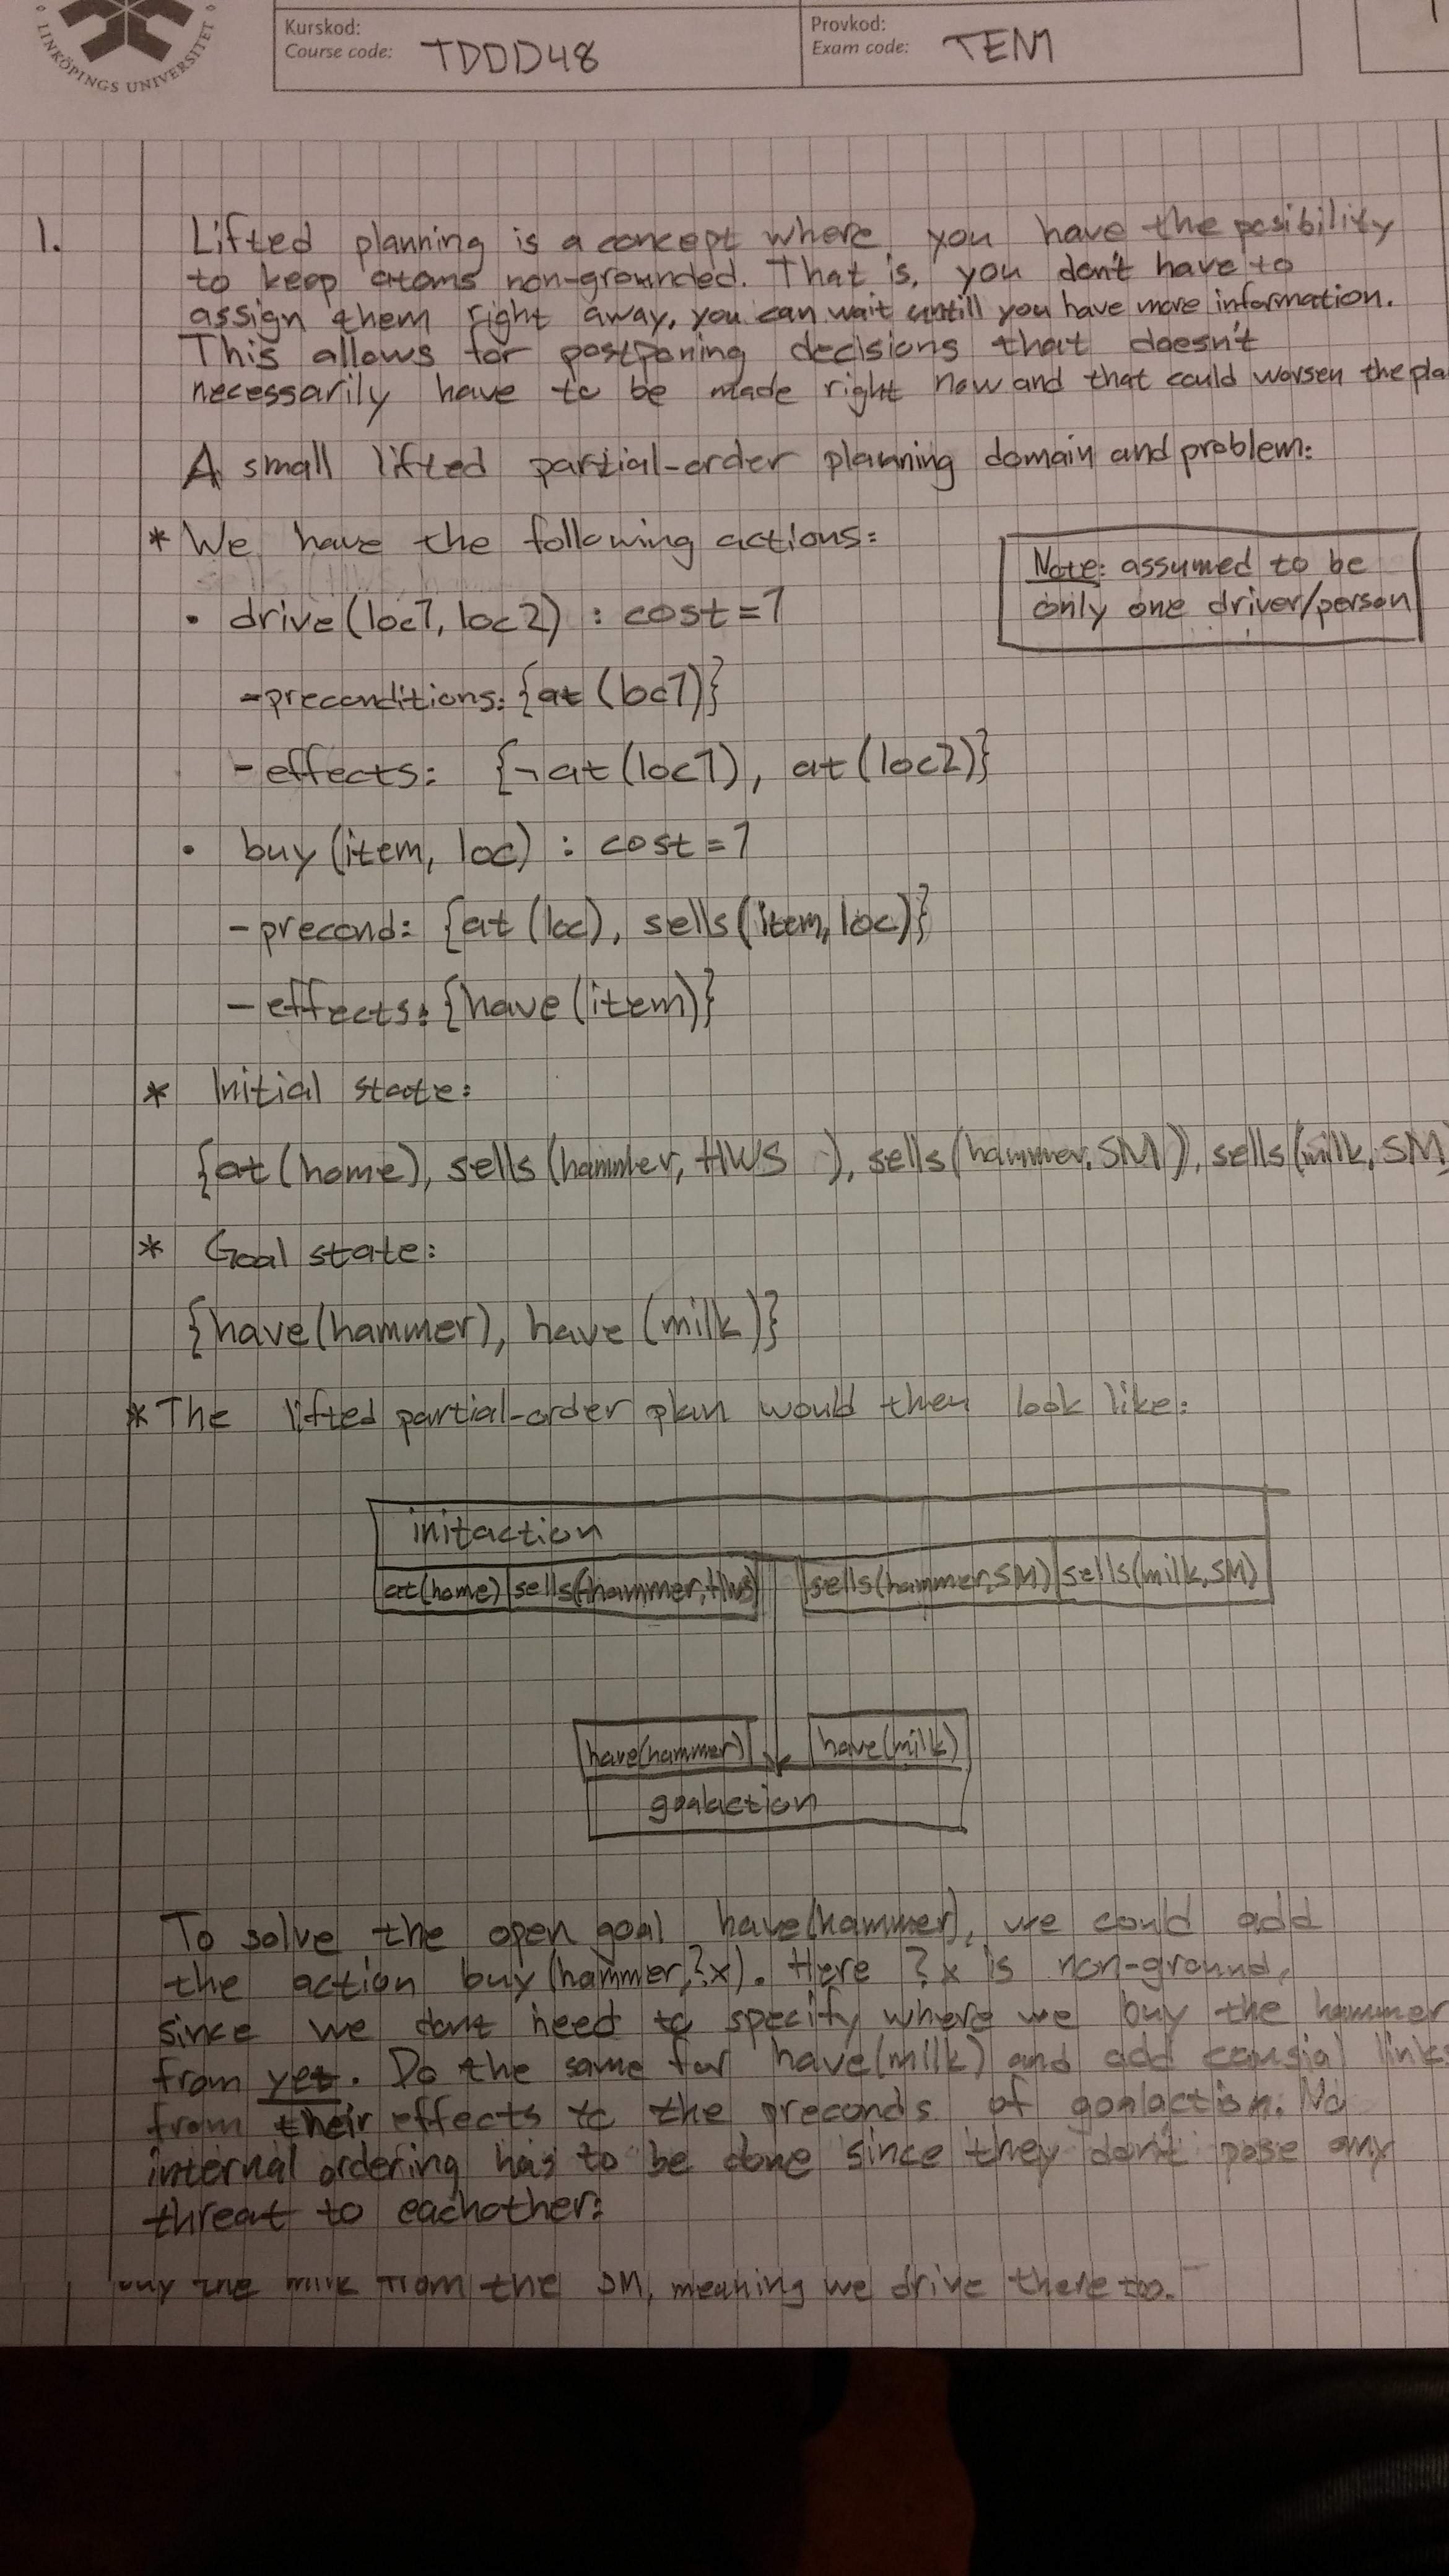 LINKÖPINGS UNIVERSITET
Kurskod:
Course code: TDDD48
Provkod:
Exam code: TEN1
1. Lifted planning is a concept where you have the posibility
to keep atoms non-grounded. That is, you don't have to
assign them right away, you can wait untill you have more information.
This allows for postponing decisions that doesn't
necessarily have to be made right now and that could worsen the pla
A small lifted partial-order planning domain and problem:
* We have the following actions:
Note: assumed to be
only one driver/person
• drive(loc1, loc2) : cost=1
-preconditions: {at(loc1)}
-effects: {¬at(loc1), at(loc2)}
• buy(item, loc) : cost=1
-precond: {at(loc), sells(item, loc)}
-effects: {have(item)}
* Initial state:
{at(home), sells(hammer, HWS), sells(hammer, SM), sells(milk, SM)
* Goal state:
{have(hammer), have(milk)}
* The lifted partial-order plan would then look like:
initaction
at(home) sells(hammer, HWS) sells(hammer, SM) sells(milk, SM)
have(hammer) have(milk)
goalaction
To solve the open goal have(hammer), we could add
the action buy(hammer, ?x). Here ?x is non-ground,
since we dont need to specify where we buy the hammer
from yet. Do the same for have(milk) and add causial links
from their effects to the preconds of goalaction. No
internal ordering has to be done since they don't pose any
threat to eachother:
buy the milk from the SM, meaning we drive there too.